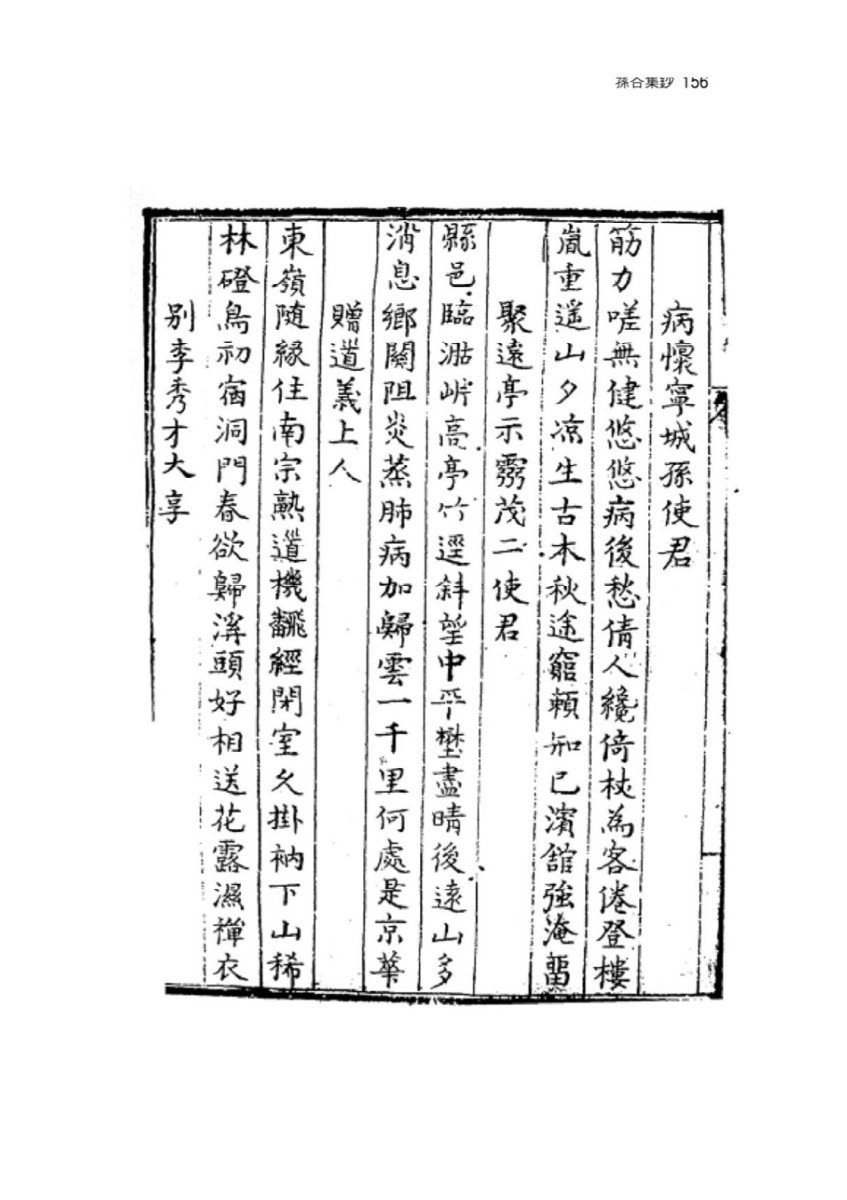 蓀谷集鈔 156
病懷寧城孫使君
筋力嗟無健悠悠病後愁倩人纔倚杖為客倦登樓
嵐重遥山夕凉生古木秋途窮頼知已濱舘強淹留
聚遠亭示霽茂二使君
縣邑臨湖岸高亭竹逕斜望中平楚盡晴後遠山多
消息鄉關阻炎蒸肺病加歸雲一千里何處是京華
贈道義上人
東嶺随緣住南宗熟道機飜經閉室久掛衲下山稀
林磴鳥初宿洞門春欲歸溪頭好相送花露濕襌衣
別李秀才大享